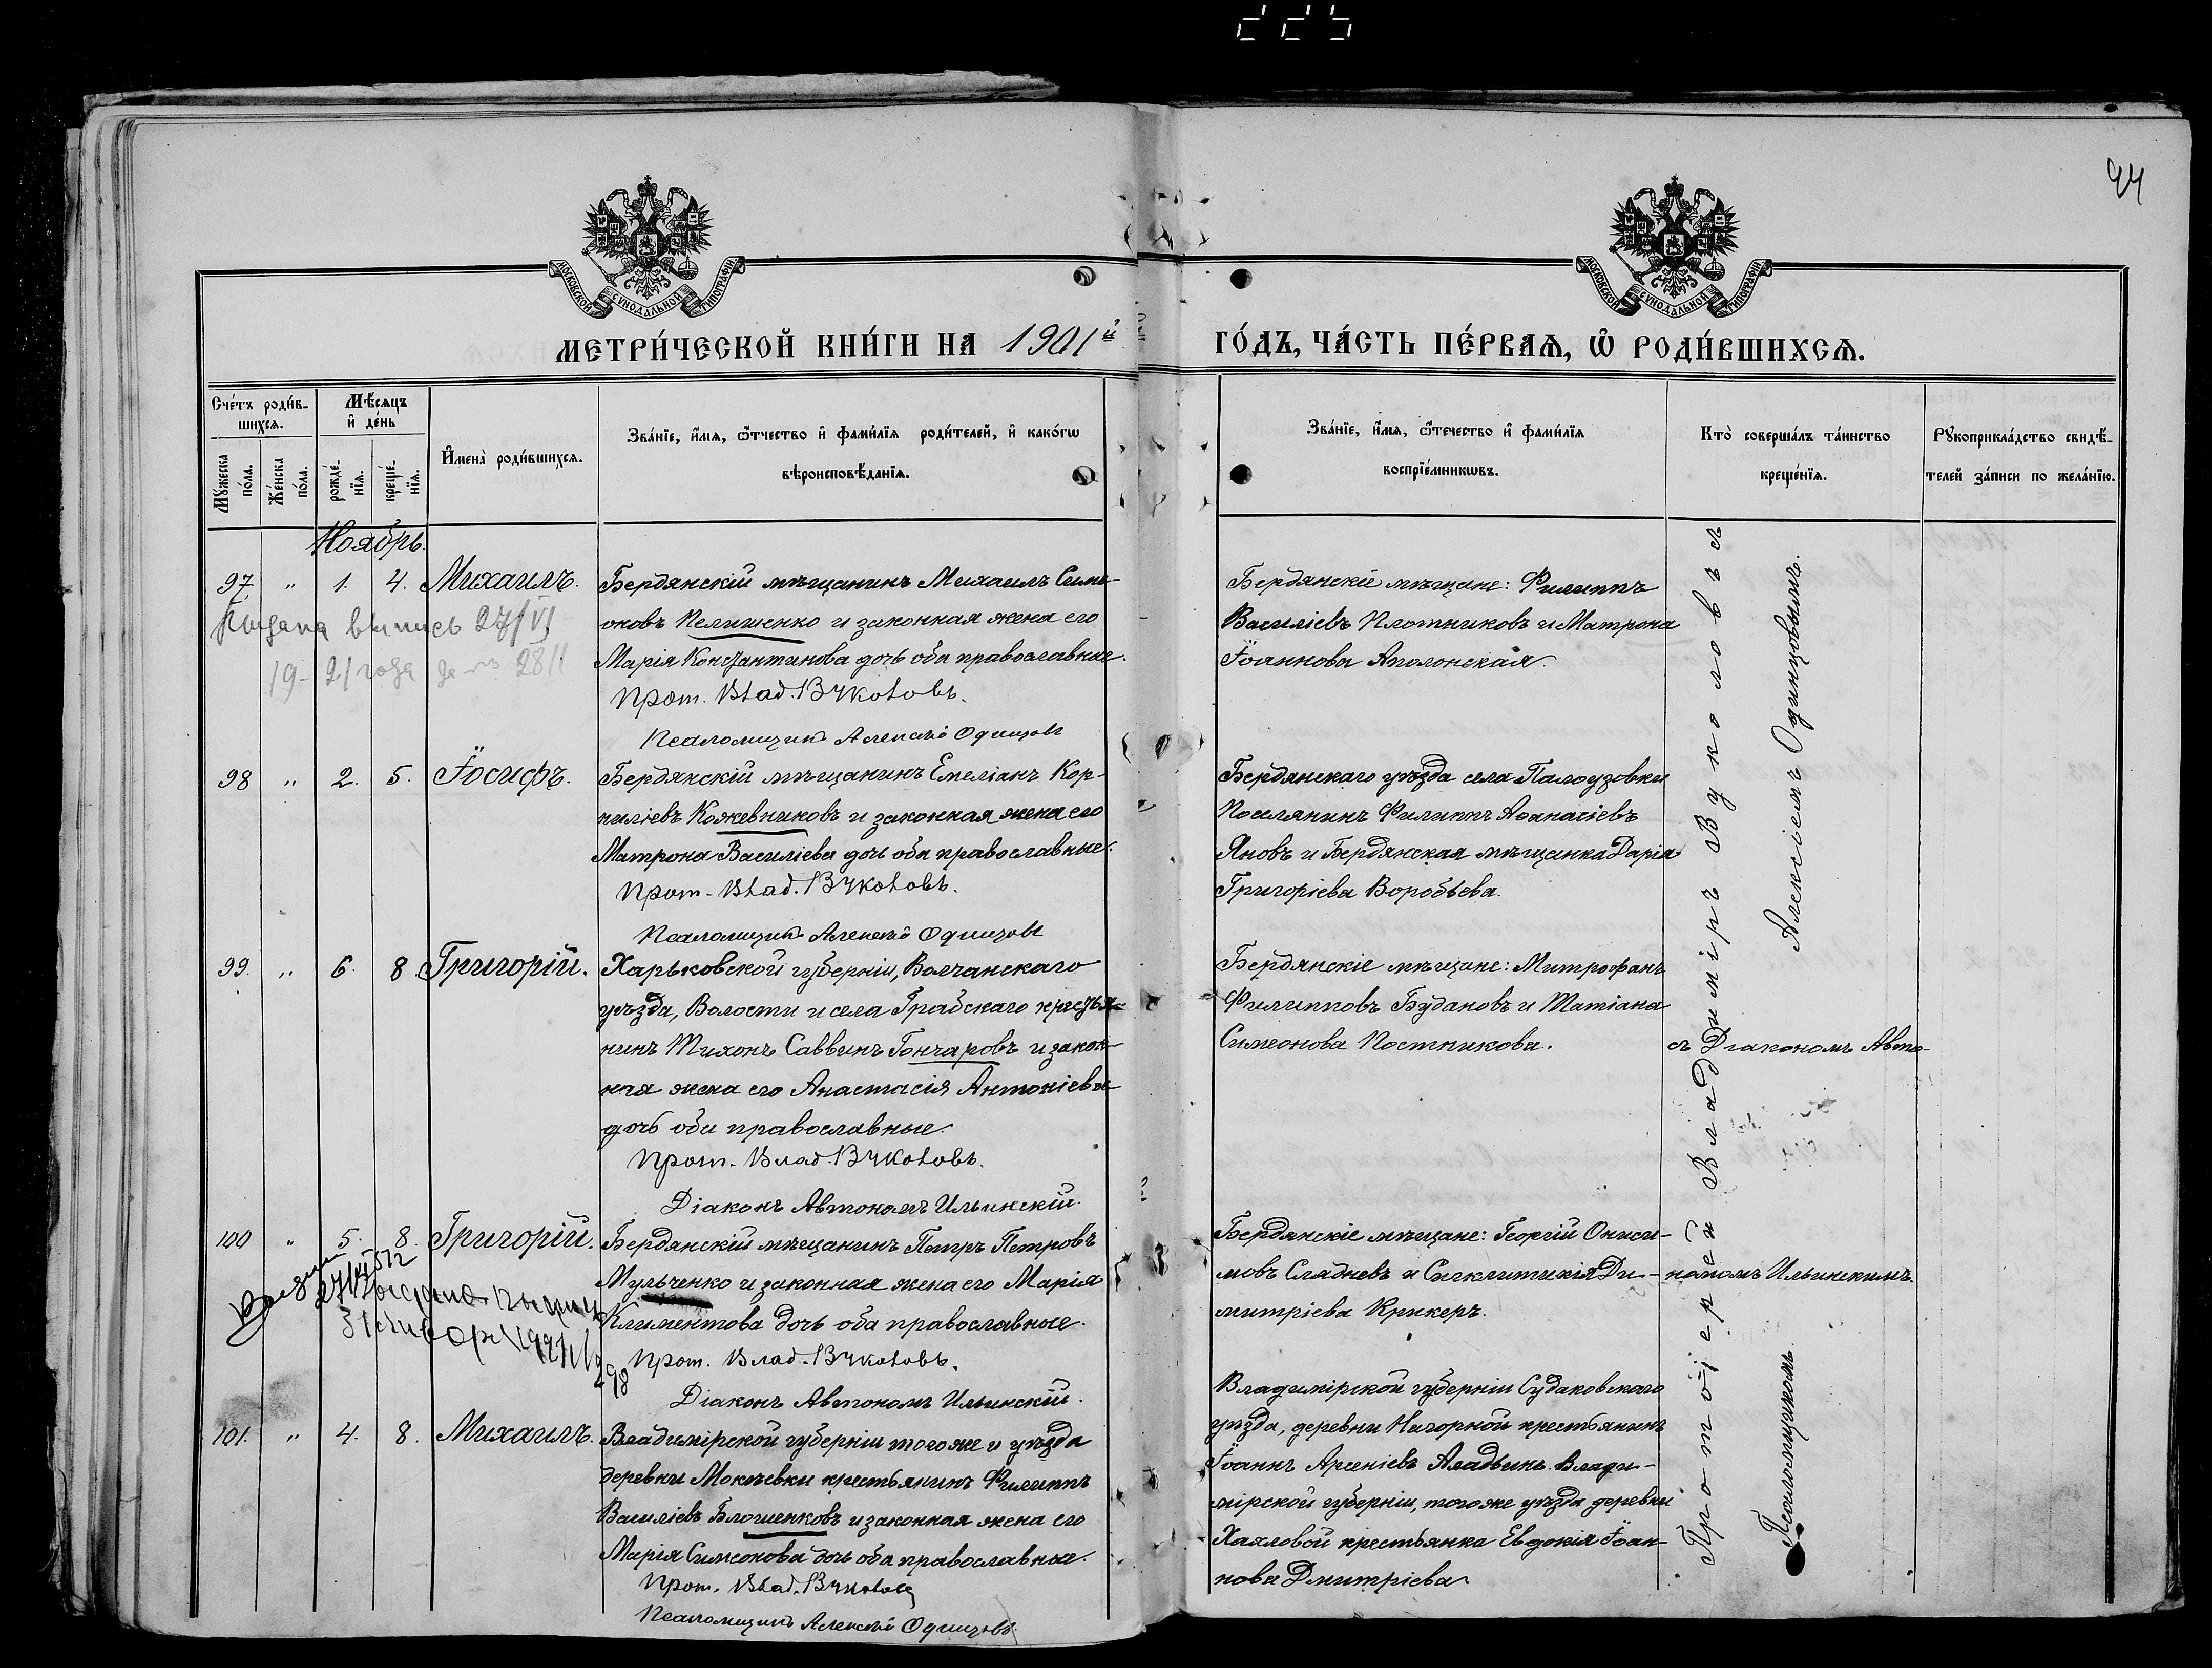 44
МОСКОВСКОЙ СѴНОДАЛЬНОЙ ТИПОГРАФІИ
МОСКОВСКОЙ СѴНОДАЛЬНОЙ ТИПОГРАФІИ
МЕТРИ́ЧЕСКОЙ КНИ́ГИ НА 1901й
ГО́ДЪ, ЧА́СТЬ ПЕ́РВАѦ, Ѽ РОДИ́ВШИХСѦ.
Сче́тъ роди́в-
шихсѧ.
Мѣ́сѧцъ
и҆ де́нь
Мꙋ́жеска
по́ла.
Же́нска
по́ла.
рожде́-
нїѧ.
креще́-
нїѧ.
И҆мена̀ роди́вшихсѧ.
Зва́нїе, и҆́мѧ, ѻ҆́тчество и҆ фами́лїѧ роди́телей, и҆ како́гѡ
вѣроисповѣ́данїѧ.
Зва́нїе, и҆́мѧ, ѻ҆те́чество и҆ фами́лїѧ
воспрїе́мникѡвъ.
Кто̀ соверша́лъ та́инство
креще́нїѧ.
Рꙋкоприкла́дство свидѣ́-
телей за́писи по жела́нїю.
Ноябрь.
97 " 1. 4. Михаилъ.
Выдана выпись 27/VI
19-21 года за № 2811
Бердянскій мѣщанинъ Михаилъ Симе-
оновъ Пелишенко и законная жена его
Марія Константинова дочь оба православные.
Прот. Влад. Вуколовъ.
Псаломщикъ Алексѣй Одинцовъ
Бердянскіе мѣщане: Филиппъ
Василіевъ Плотниковъ и Матрона
Іоаннова Аполонская.
98 " 2. 5. Іосифъ.
Бердянскій мѣщанинъ Емеліанъ Кор-
ниліевъ Кожевниковъ и законная жена его
Матрона Василіева дочь оба православные.
Прот. Влад. Вуколовъ.
Псаломщикъ Алексѣй Одинцовъ
Бердянскаго уѣзда села Палоузовки
Поселянинъ Филиппъ Аѳанасіевъ
Яновъ и Бердянская мѣщанка Дарія
Григоріева Воробьева.
99. " 6. 8 Григорій.
Харьковской губерніи, Волчанскаго
уѣзда, Волости и села Графскаго крестья-
нинъ Тихонъ Саввинъ Гончаровъ и закон-
ная жена его Анастасія Антоніева
дочь оба православные.
Прот. Влад. Вуколовъ.
Діаконъ Автономъ Ильинскій.
Бердянскіе мѣщане: Митрофанъ
Филипповъ Будановъ и Татіана
Симеонова Постникова.
съ Діакономъ Авто-
100 " 5. 8. Григорій.
Бердянскій мѣщанинъ Петръ Петровъ
Мульченко и законная жена его Марія
Климентова дочь оба православные.
Прот. Влад. Вуколовъ.
Діаконъ Автономъ Ильинскій.
Бердянскіе мѣщане: Георгій Ониси-
мовъ Сладневъ и Сигклитикія Ди-
митріева Крикеръ.
номомъ Ильинскимъ.
101. " 4. 8. Михаилъ.
Владимірской губерніи того же и уѣзда
деревни Мокѣевки крестьянинъ Филиппъ
Василіевъ Блошенковъ и законная жена его
Марія Симеонова дочь оба православные.
Прот. Влад. Вуколовъ
Псаломщикъ Алексѣй Одинцовъ.
Владимірской губерніи Судаковскаго
уѣзда, деревни Нагорной крестьянинъ
Іоаннъ Арсеніевъ Аладьинъ. Влади-
мірской губерніи, того же уѣзда деревни
Хахловой крестьянка Евдокія Іоан-
нова Дмитріева
Протоіерей Владиміръ Вуколовъ съ
Псаломщикомъ Алексіемъ Одинцовымъ.